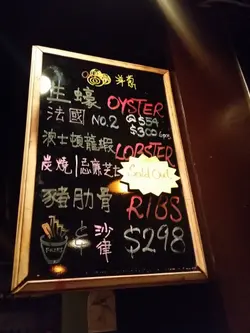 洋蔥
生蠔 OYSTER
法國 NO.2 @$54
$300 6pcs
波士頓龍蝦 LOBSTER
炭燒 | 忌廉芝士
Sold Out
豬肋骨 RIBS
& 沙律 $298